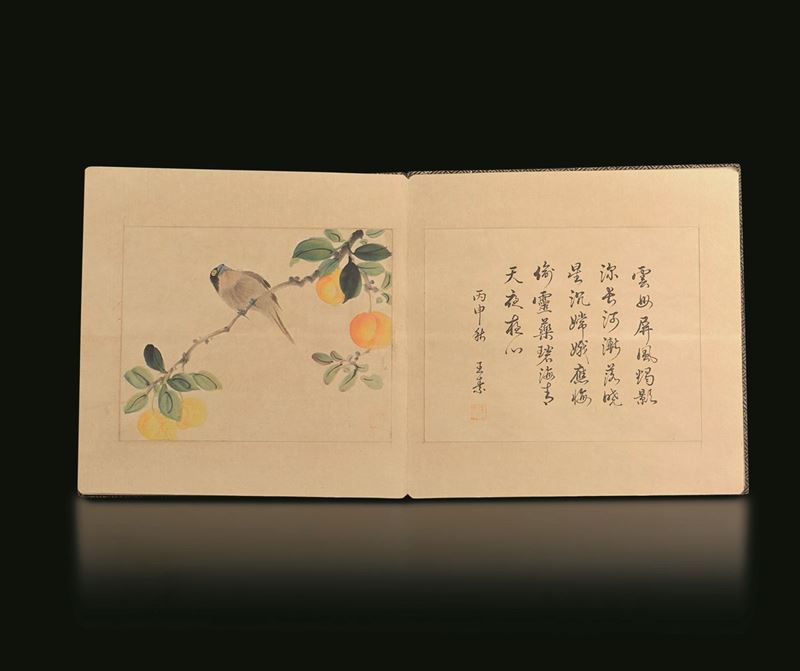 雲母屏風燭影
深長河漸落曉
星沉嫦娥應悔
偷靈藥碧海青
天夜夜心
丙申秋 王